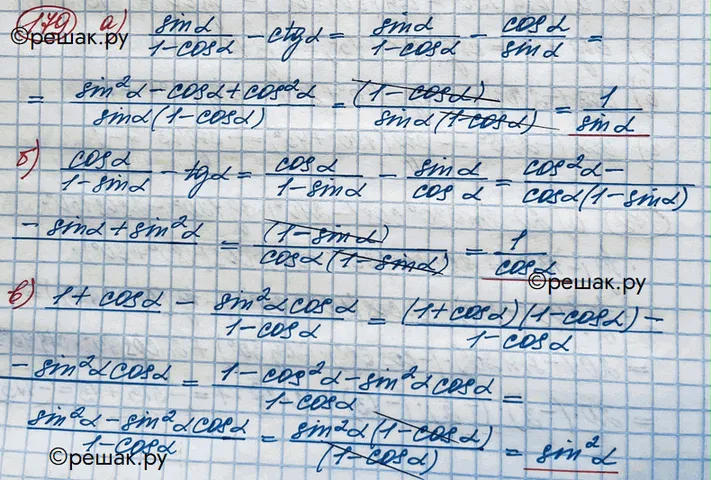 170 а) sinα/(1-cosα) - ctgα = sinα/(1-cosα) - cosα/sinα =
©решак.ру
= (sin²α - cosα + cos²α)/(sinα(1-cosα)) = (1-cosα)/(sinα(1-cosα)) = 1/sinα
б) cosα/(1-sinα) - tgα = cosα/(1-sinα) - sinα/cosα = (cos²α -)/(cosα(1-sinα))
(- sinα + sin²α) = (1-sinα)/(cosα(1-sinα)) = 1/cosα
©решак.ру
в) 1+cosα - sin²αcosα/(1-cosα) = ((1+cosα)(1-cosα) -)/(1-cosα)
(- sin²αcosα) = (1-cos²α - sin²αcosα)/(1-cosα) =
(sin²α - sin²αcosα)/(1-cosα) = sin²α(1-cosα)/(1-cosα) = sin²α
©решак.ру